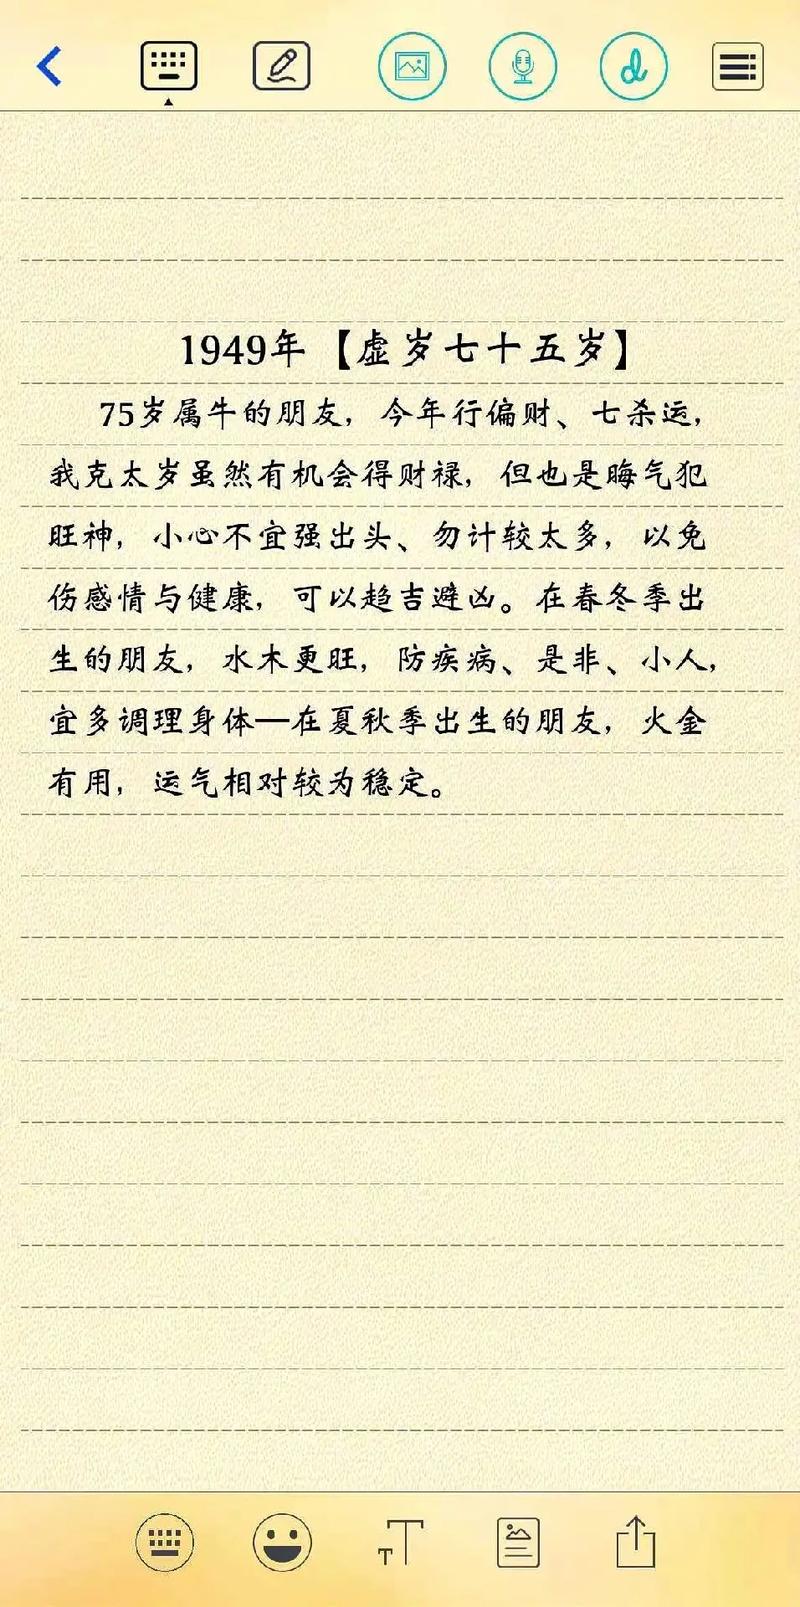 1949年【虚岁七十五岁】
75岁属牛的朋友，今年行偏财、七杀运，
我克太岁虽然有机会得财禄，但也是晦气犯
旺神，小心不宜强出头、勿计较太多，以免
伤感情与健康，可以趋吉避凶。在春冬季出
生的朋友，水木更旺，防疾病、是非、小人，
宜多调理身体—在夏秋季出生的朋友，火金
有用，运气相对较为稳定。